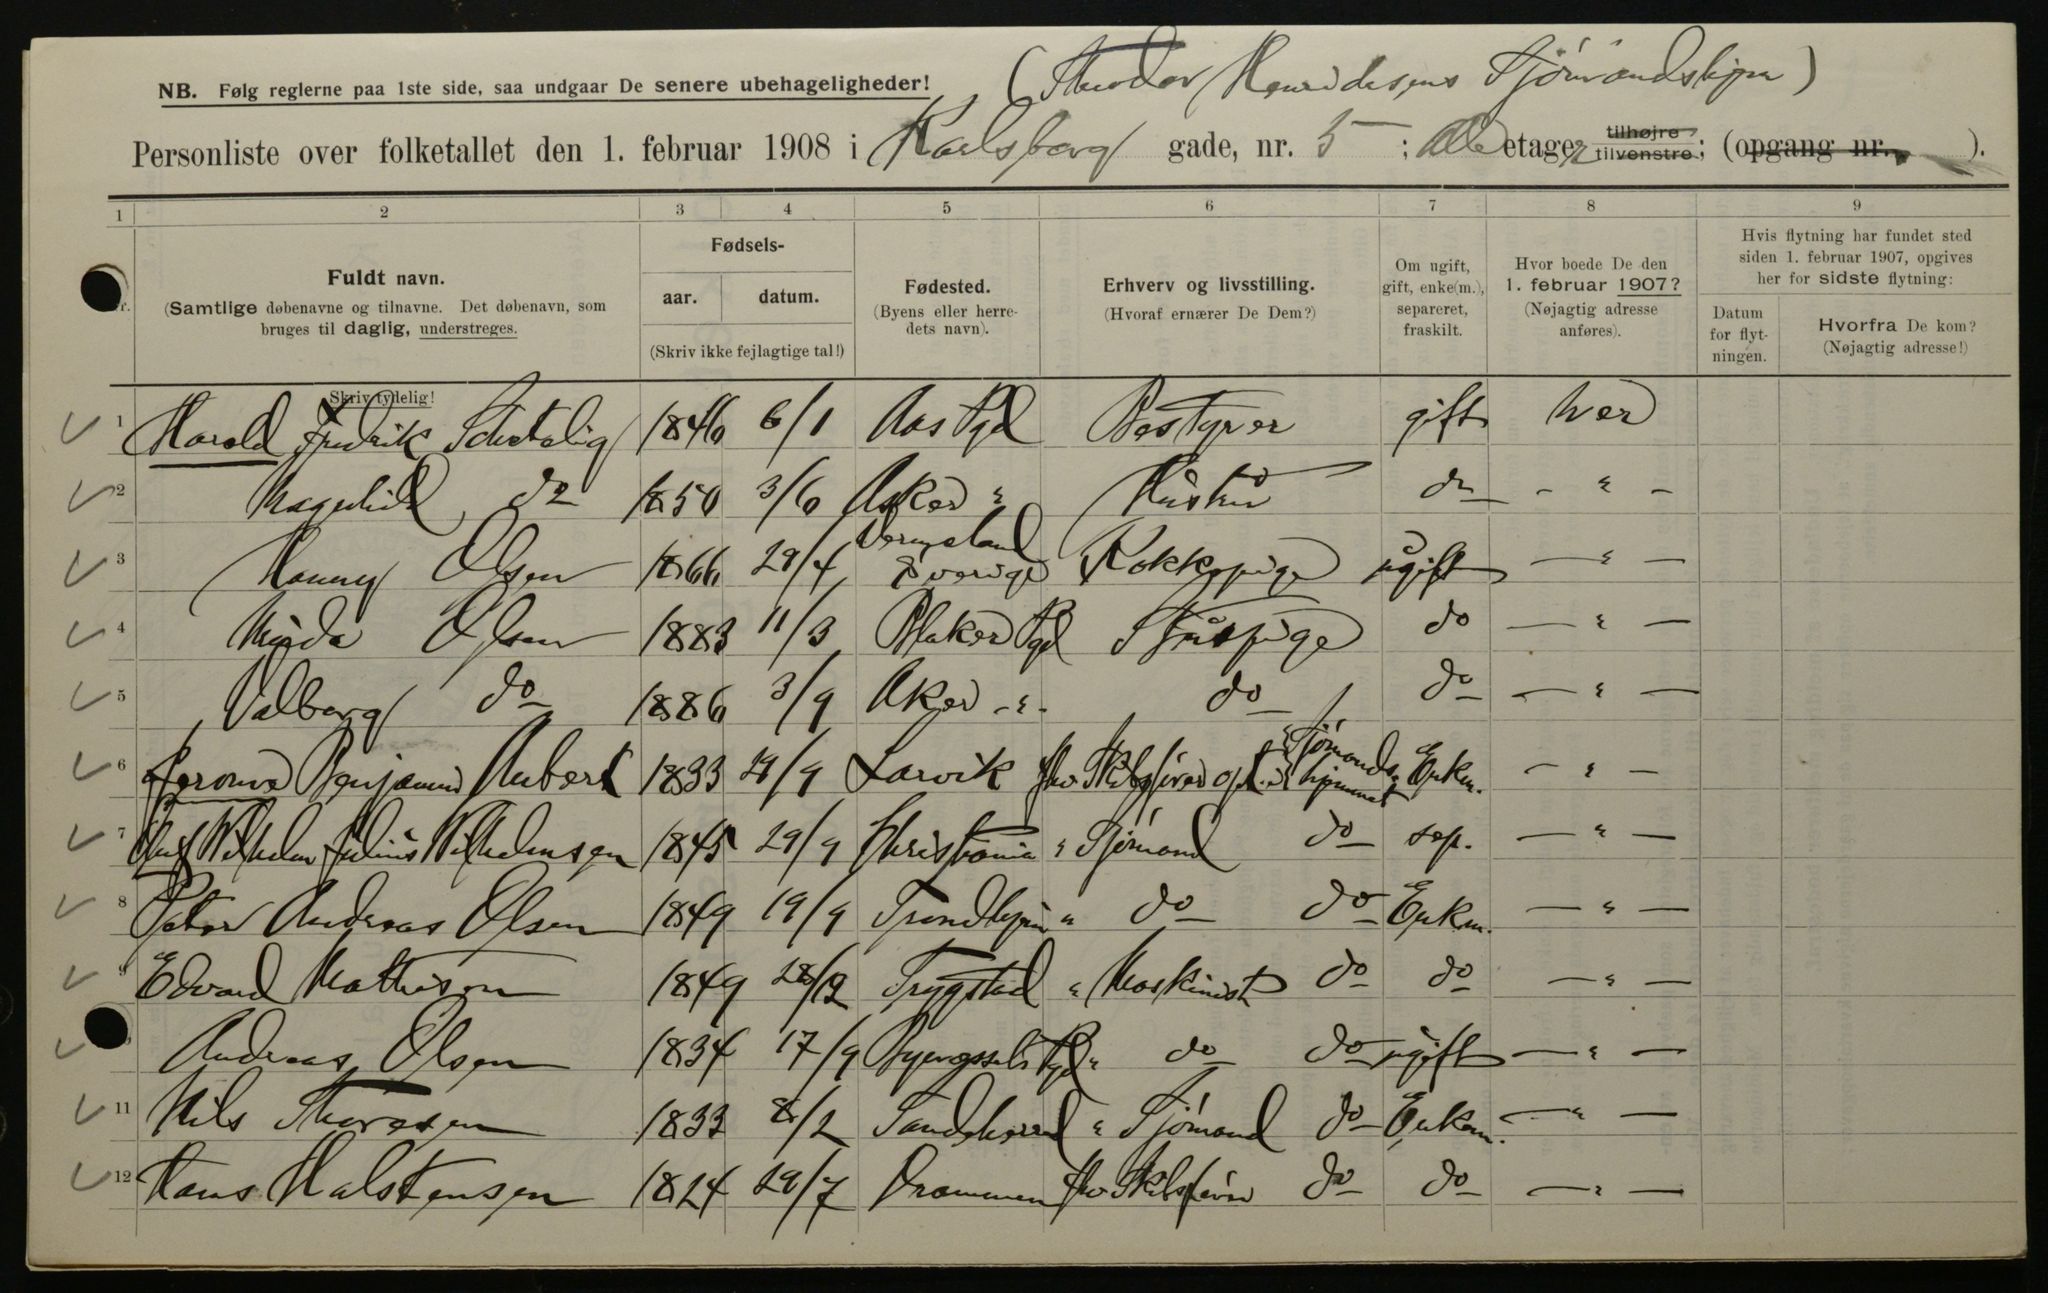 NB. Følg reglerne paa 1ste side, saa undgaar De senere ubehageligheder!
(Theodor Henrichsens Sjömandshjem)
Personliste over folketallet den 1. februar 1908 i Karlsborg gade, nr. 5 ; Alle etager tilhøjre tilvenstre; (opgang nr. ).
1 2 3 4 5 6 7 8 9
Nr.
Fuldt navn.
(Samtlige døbenavne og tilnavne. Det døbenavn, som
bruges til daglig, understreges.
Skriv tydelig!
Fødsels-
aar. datum.
(Skriv ikke fejlagtige tal!)
Fødested.
(Byens eller herre-
dets navn).
Erhverv og livsstilling.
(Hvoraf ernærer De Dem?)
Om ugift,
gift, enke(m.),
separeret,
fraskilt.
Hvor boede De den
1. februar 1907?
(Nøjagtig adresse
anføres).
Hvis flytning har fundet sted
siden 1. februar 1907, opgives
her for sidste flytning:
Datum
for flyt-
ningen.
Hvorfra De kom?
(Nøjagtig adresse!)
1 Harald Fredrik Schetelig 1846 6/1 Aas Pgd Bestyrer gift her
2 Magnhild do 1850 3/6 Asker " Hustru do - " -
3 Hanny Olsen 1866 29/4 Vermeland Sverige Kokkepige ugift - " -
4 Minda Olsen 1883 11/3 Blaker Pgd Stuepige do - " -
5 Valborg do 1886 3/9 Aker - " - do do - " -
6 Benjamin Aubert 1833 29/9 Larvik fhv Skibsfører Sjömandshjemmet Enkem. - " -
7 Wilhelm Julius Wilhelmsen 1845 29/9 Christiania " Sjömand do sep. - " -
8 Peter Andreas Olsen 1849 19/9 Trondhjem " do do Enkem. - " -
9 Edvard Mathisen 1849 28/12 Trygstad " Maskinist do do - " -
Andreas Olsen 1834 17/9 Pgd " do do ugift - " -
11 Nils Thoresen 1833 8/2 Sandeherred " Sjömand do Enkem. - " -
12 Hans Halstensen 1824 29/7 Drammen fhv Skibsfører do do - " -